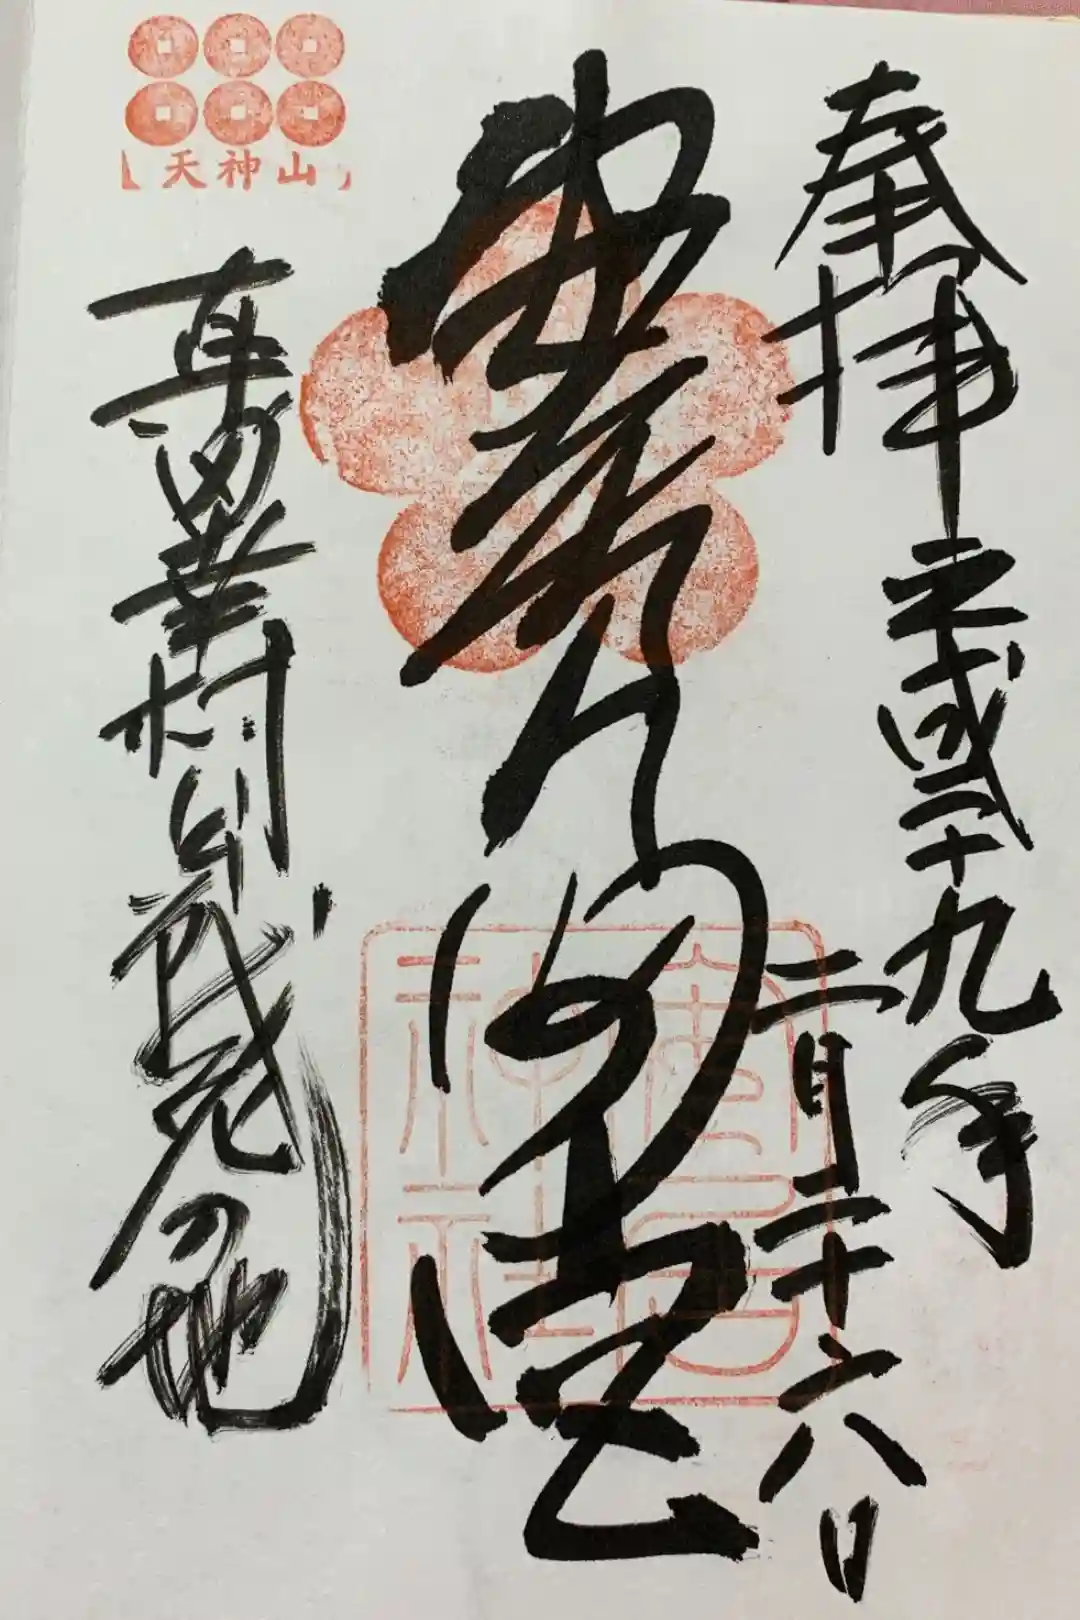 奉拝 平成二十九年
二月二十六日
安居神社
天神山
真田幸村公戦死の地